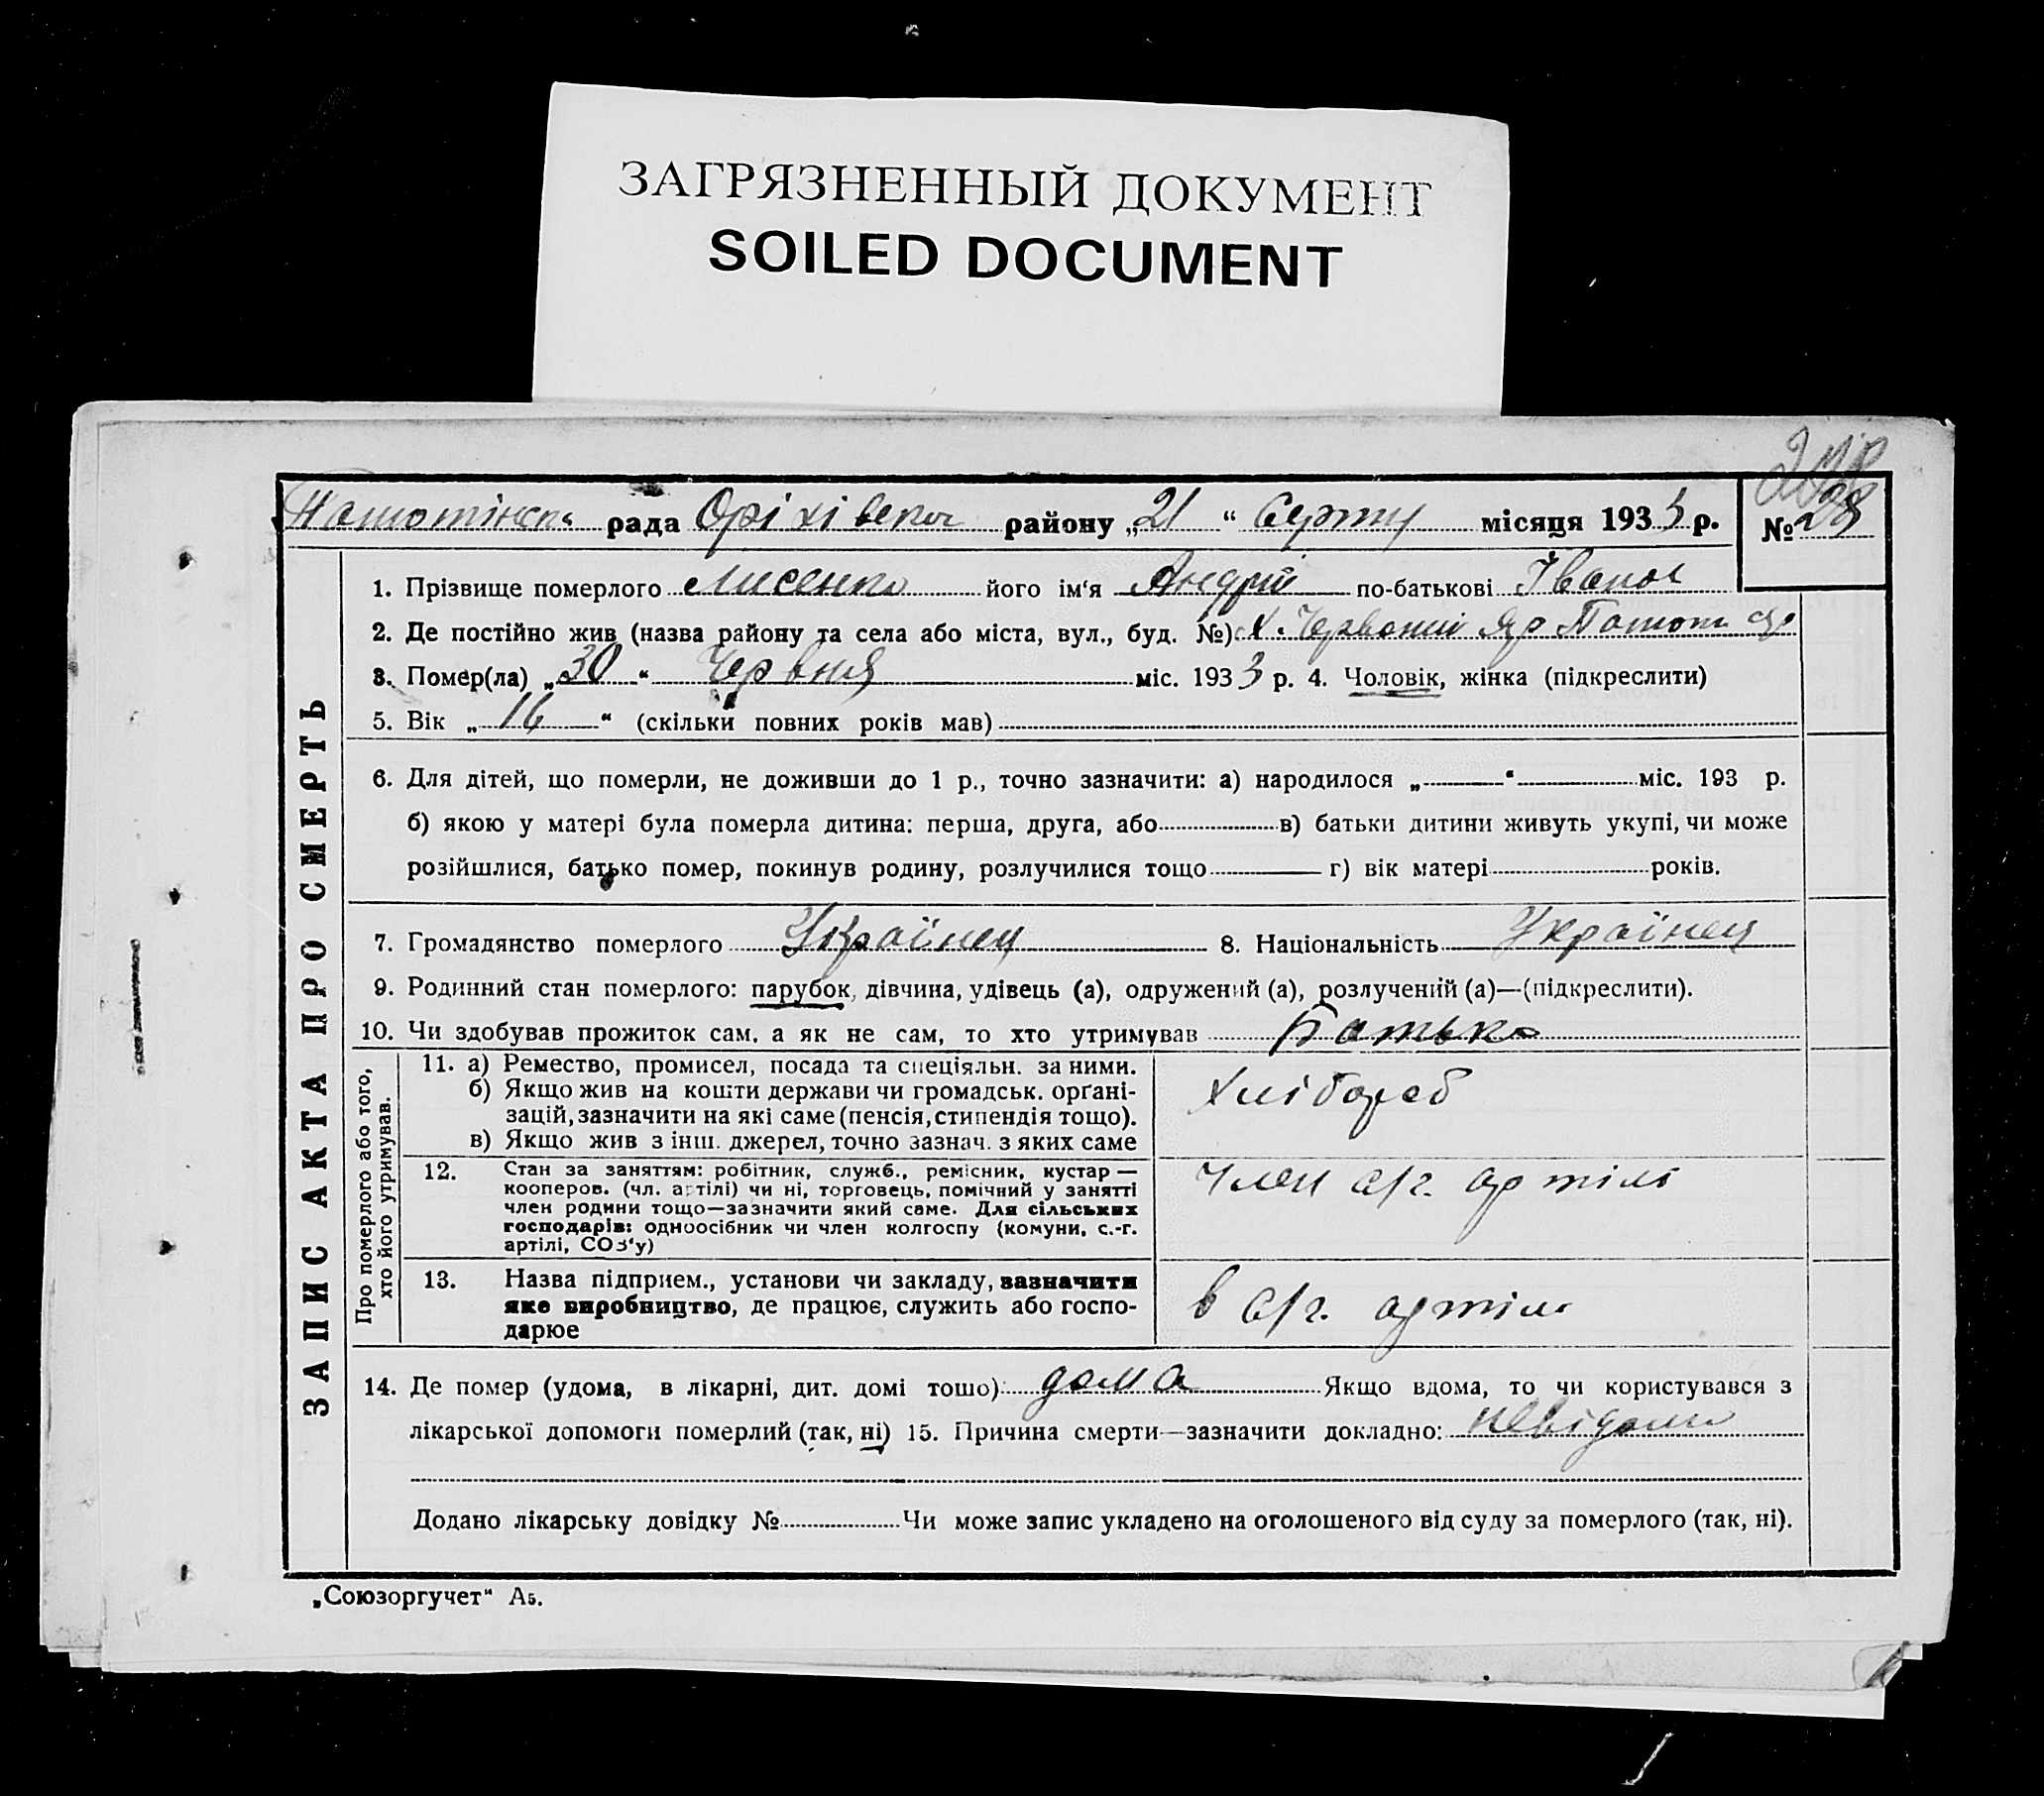 ЗАГРЯЗНЕННЫЙ ДОКУМЕНТ
SOILED DOCUMENT
рада Оріхівськ району „21“ Серпня місяця 1933 р. № 28
ЗАПИС АКТА ПРО СМЕРТЬ
1. Прізвище померлого Лисенко його ім'я Андрій по-батькові Іванов
2. Де постійно жив (назва району та села або міста, вул., буд. №) х. Червоний Яр
3. Помер(ла) „30“ Червня міс. 1933 р. 4. Чоловік, жінка (підкреслити)
5. Вік „16“ (скільки повних років мав)
6. Для дітей, що померли, не доживши до 1 р., точно зазначити: а) народилося „ “ міс. 193 р.
б) якою у матері була померла дитина: перша, друга, або в) батьки дитини живуть укупі, чи може
розійшлися, батько помер, покинув родину, розлучилися тощо г) вік матері років.
7. Громадянство померлого Українец 8. Національність Українец
9. Родинний стан померлого: парубок, дівчина, удівець (а), одружений (а), розлучений (а)—(підкреслити).
10. Чи здобував прожиток сам, а як не сам, то хто утримував Батько
Про померлого або того,
хто його утримував.
11. а) Ремество, промисел, посада та спеціяльн. за ними.
б) Якщо жив на кошти держави чи громадськ. орґані-
зацій, зазначити на які саме (пенсія, стипендія тощо).
в) Якщо жив з інш. джерел, точно зазнач. з яких саме
Хлібороб
12. Стан за заняттям: робітник, служб., ремісник, кустар —
кооперов. (чл. артілі) чи ні, торговець, помічний у занятті
член родини тощо—зазначити який саме. Для сільських
господарів: одноосібник чи член колгоспу (комуни, с.-г.
артілі, СОЗ'у)
Член с/г. артілі
13. Назва підприєм., установи чи закладу, зазначити
яке виробництво, де працює, служить або госпо-
дарює
в с/г. артілі
14. Де помер (удома, в лікарні, дит. домі тошо) дома Якщо вдома, то чи користувався з
лікарської допомоги померлий (так, ні) 15. Причина смерти—зазначити докладно: невідома
Додано лікарську довідку № Чи може запис укладено на оголошеного від суду за померлого (так, ні).
„Союзоргучет“ А5.